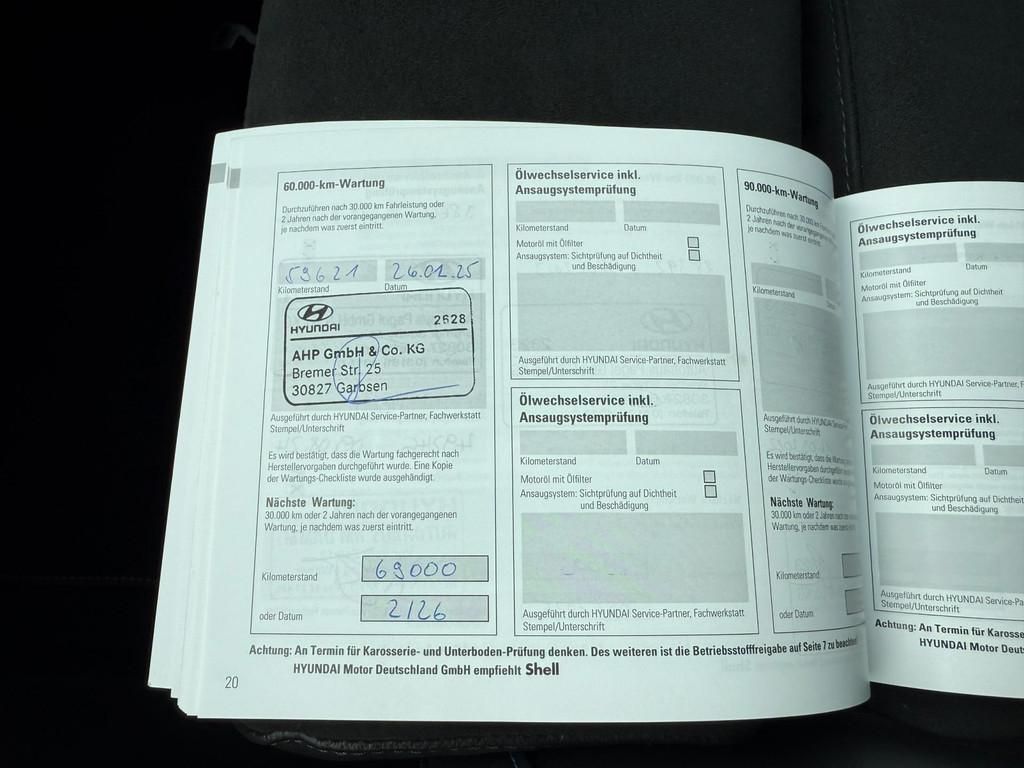 60.000-km-Wartung
Durchzuführen nach 30.000 km Fahrleistung oder
2 Jahren nach der vorangegangenen Wartung,
je nachdem was zuerst eintritt.
59621 26.02.25
Kilometerstand Datum
HYUNDAI 2628
AHP GmbH & Co. KG
Bremer Str. 25
30827 Garbsen
Ausgeführt durch HYUNDAI Service-Partner, Fachwerkstatt
Stempel/Unterschrift
Es wird bestätigt, dass die Wartung fachgerecht nach
Herstellervorgaben durchgeführt wurde. Eine Kopie
der Wartungs-Checkliste wurde ausgehändigt.
Nächste Wartung:
30.000 km oder 2 Jahren nach der vorangegangenen
Wartung, je nachdem was zuerst eintritt.
Kilometerstand 69000
oder Datum 2/26
Ölwechselservice inkl.
Ansaugsystemprüfung
Kilometerstand Datum
Motoröl mit Ölfilter
Ansaugsystem: Sichtprüfung auf Dichtheit
und Beschädigung
Ausgeführt durch HYUNDAI Service-Partner, Fachwerkstatt
Stempel/Unterschrift
Ölwechselservice inkl.
Ansaugsystemprüfung
Kilometerstand Datum
Motoröl mit Ölfilter
Ansaugsystem: Sichtprüfung auf Dichtheit
und Beschädigung
Ausgeführt durch HYUNDAI Service-Partner, Fachwerkstatt
Stempel/Unterschrift
90.000-km-Wartung
Durchzuführen nach 30.000 km Fahrleistung
2 Jahren nach der vorangegangenen
je nachdem was zuerst eintritt.
Kilometerstand
Ausgeführt durch HYUNDAI
Stempel/Unterschrift
Es wird bestätigt, dass die Wartung
Herstellervorgaben durchgeführt
der Wartungs-Checkliste wurde
Nächste Wartung:
30.000 km oder 2 Jahren nach der
Wartung, je nachdem was zuerst
Kilometerstand
oder Datum
Achtung: An Termin für Karosserie- und Unterboden-Prüfung denken. Des weiteren ist die Betriebsstofffreigabe auf Seite 7 zu beachten!
HYUNDAI Motor Deutschland GmbH empfiehlt Shell
20
Ölwechselservice inkl.
Ansaugsystemprüfung
Kilometerstand Datum
Motoröl mit Ölfilter
Ansaugsystem: Sichtprüfung auf Dichtheit
und Beschädigung
Ausgeführt durch HYUNDAI Service-Partner, F
Stempel/Unterschrift
Ölwechselservice inkl.
Ansaugsystemprüfung
Kilometerstand Datum
Motoröl mit Ölfilter
Ansaugsystem: Sichtprüfung auf Dichtheit
und Beschädigung
Ausgeführt durch HYUNDAI Service-Pa
Stempel/Unterschrift
Achtung: An Termin für Karosse
HYUNDAI Motor Deuts